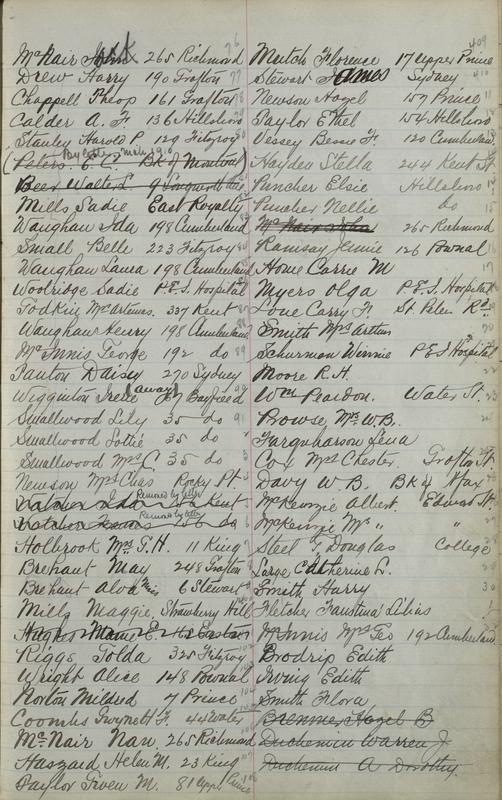 McNair John 265 Richmond 76
Drew Harry 190 Grafton 77
Chappell Theop 161 Grafton 78
Calder A. F. 136 Hillsboro
Stanley Harold P. 129 Fitzroy
(Peters. C. C. Bk of Montreal)
Beer Walter L. 9 Longworth Ave
Mills Sadie East Royalty
Waughan Ida 198 Cumberland
Small Belle 223 Fitzroy
Waughan Laura 198 Cumberland
Woolridge Sadie P.E.I. Hospital
Todkin Mrs Artemas. 337 Kent
Waughan Henry 198 Cumberland
McInnis George 192 do 89
Panton Daisy 270 Sydney
Wigginton Irene (away) 87 Bayfield
Smallwood Lily 35 do 91
Smallwood Lottie 35 do
Smallwood Mrs C 35 do 3
Newson Mrs Chas Rocky Pt.
Removed by letter Kent
Removed by letter do 6
Holbrook Mrs T. H. 11 King 7
Brehaut May 248 Grafton
Brehaut Alva Miss 6 Stewart
Mills Maggie, Strawberry Hill
Riggs Tolda 325 Fitzroy
Wright Alice 148 Pownal
Norton Mildred 7 Prince 104
Coombs Gwynett F. 44 Water
McNair Nan. 265 Richmond
Haszard Helen M. 23 King
Taylor Gwen M. 81 Upper Prince
409
Mutch Florence 17 Upper Prince
Stewart James Sydney 410
Newson Hazel 159 Prince 11
Taylor Ethel 154 Hillsboro
Vessey Bessie F. 120 Cumberland
Hayden Stella 244 Kent St
Puncher Elsie Hillsboro 14
Puncher Nellie do 15
McNair John 265 Richmond
Ramsay Jennie 126 Pownal
Howe Carrie M 17
Myers Olga P.E.I. Hospital
Love Carry F. St. Peters Rd.
Smith Mrs Arthur
Schurman Winnie P.E.I Hospital
Moore R. H. 22
Wm Peardon. Water St. 23
Prowse Mrs W. B. 24
Farquharson Lena
Cox Mrs Chester. Grafton St
Davy W. B. Bk of
McKenzie Albert. Edward St
McKenzie Mrs " "
Steel T. Douglas College
Large Catherine L.
Smith Harry 30
Fletcher Faustina Lilias
McInnis Mrs Geo 192 Cumberland
Brodrip Edith
Irving Edith
Smith Flora
Brenner Hazel B
Duchemin Warren J
Duchemin A Dorothy.